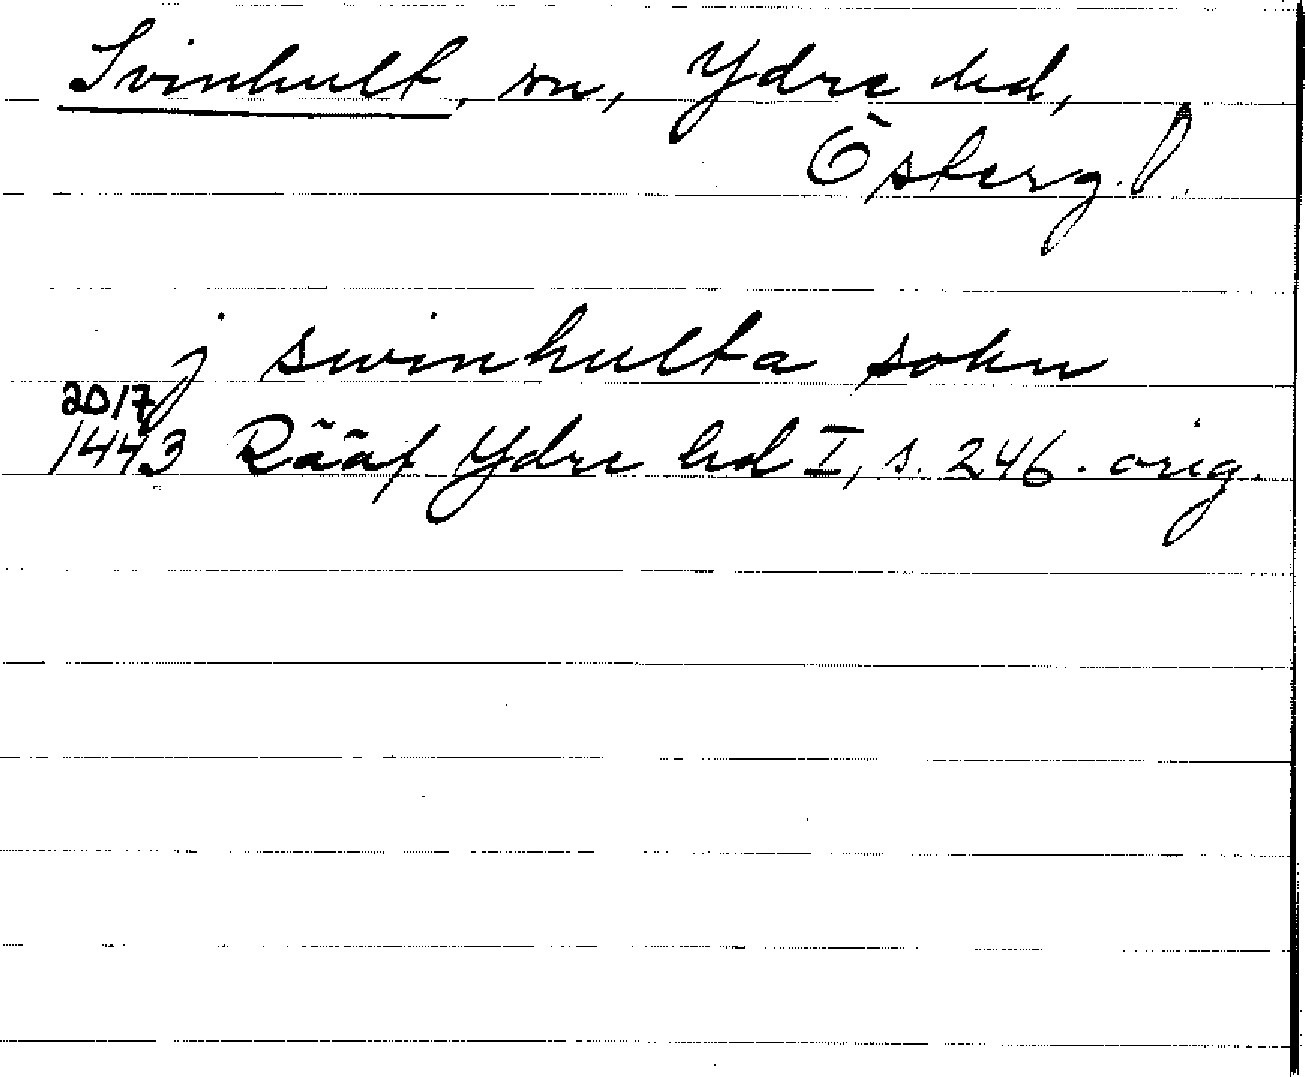 Svinhult, sn, Ydre hd,
Österg. l.
j swinhulta sokn
20/7
1443 Rääf Ydre hd I, s. 246. orig.